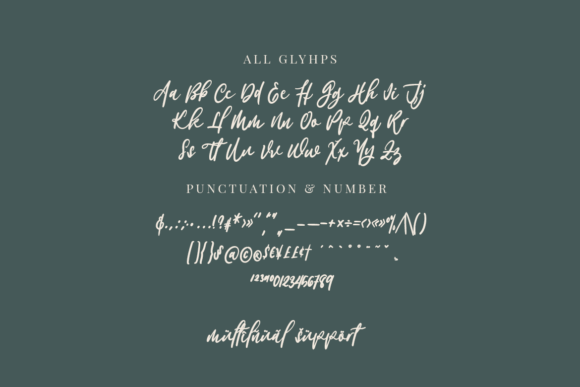 ALL GLYHPS
Aa Bb Cc Dd Ee Ff Gg Hh Ii Jj
Kk Ll Mm Nn Oo Pp Qq Rr
Ss Tt Uu Vv Ww Xx Yy Zz
PUNCTUATION & NUMBER
.,:;…!?#*
@©®$€¥££¢†
12340123456789
multilñuál šuppört